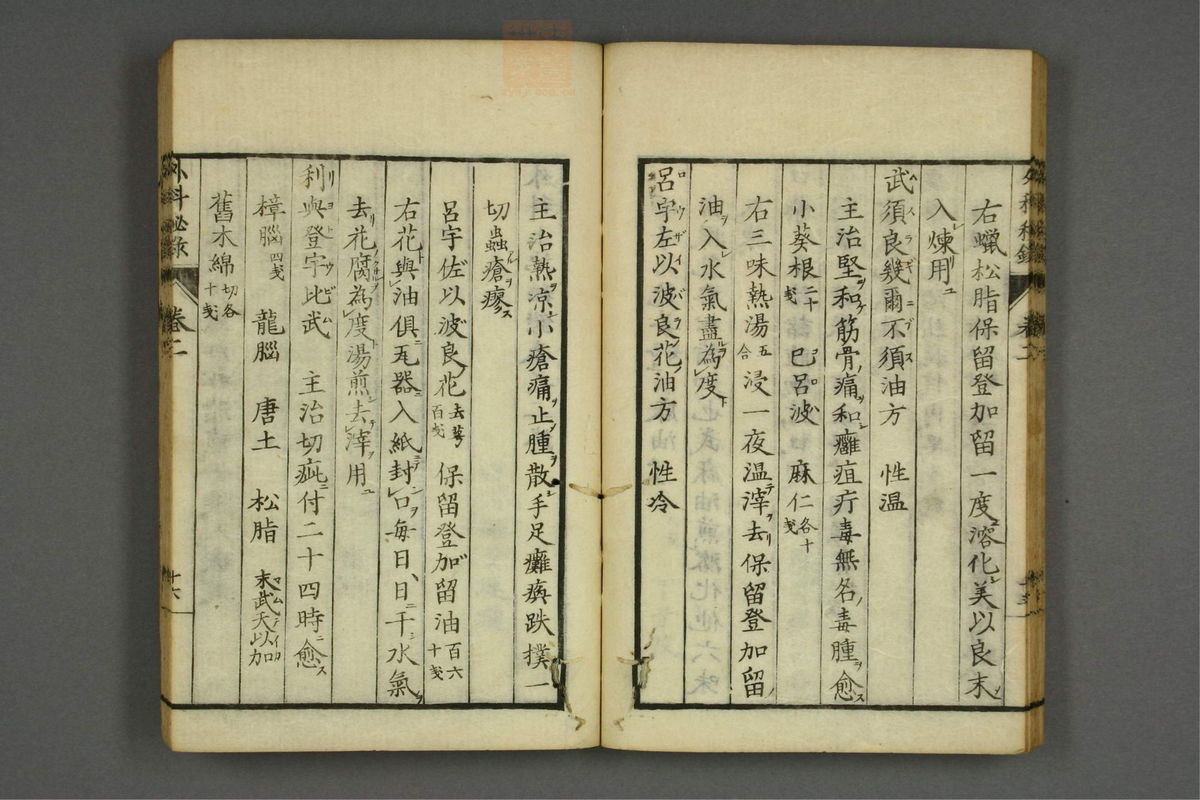 右蠟松脂保留登加留一度溶化美以良末
入煉用
武須良幾爾不須油方　性温
主治堅和筋骨痛和癰疽疔毒無名毒腫愈
小葵根二十戔　巴呂波　麻仁各十戔
右三味熱湯五合浸一夜温滓去保留登加留
油入水氣盡為度
呂宇左以波良花油方　性冷
主治熱凉小瘡痛止腫散手足癱瘓跌撲一
切蟲瘡瘳
呂宇佐以波良花去萼百戔　保留登加留油百六十戔
右花與油俱瓦器入紙封口每日日干水氣
去花腐為度湯煎去滓用
利與登宇比武　主治切疵付二十四時愈
樟腦四戔　龍腦　唐土　松脂　末武天以加
舊木綿切各十戔
外科秘录　卷二　十六